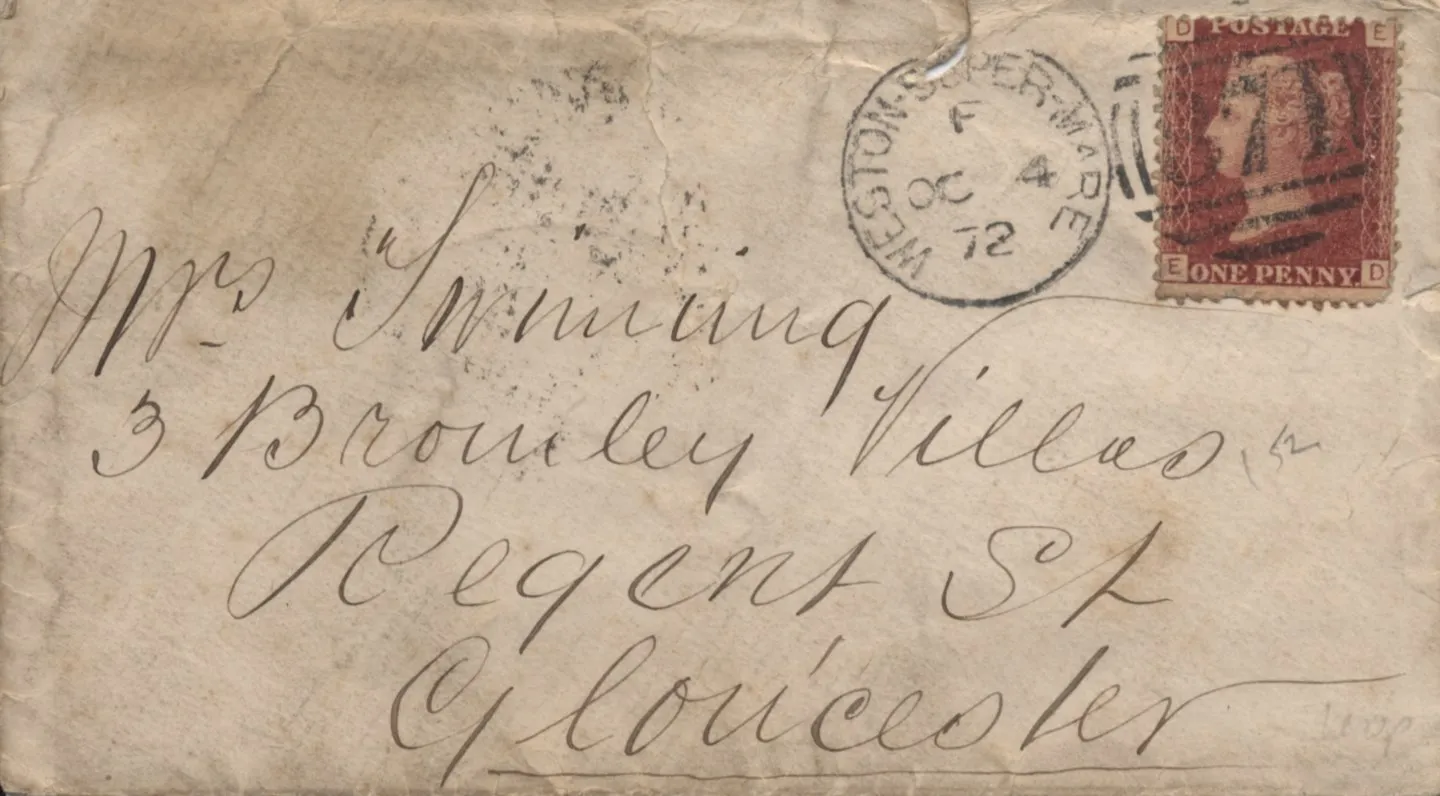 D POSTAGE E
WESTON-SUPER-MARE
F
OC 4
72
E ONE PENNY. D
Mrs Swining
3 Bromley Villas
Regent St
Gloucester